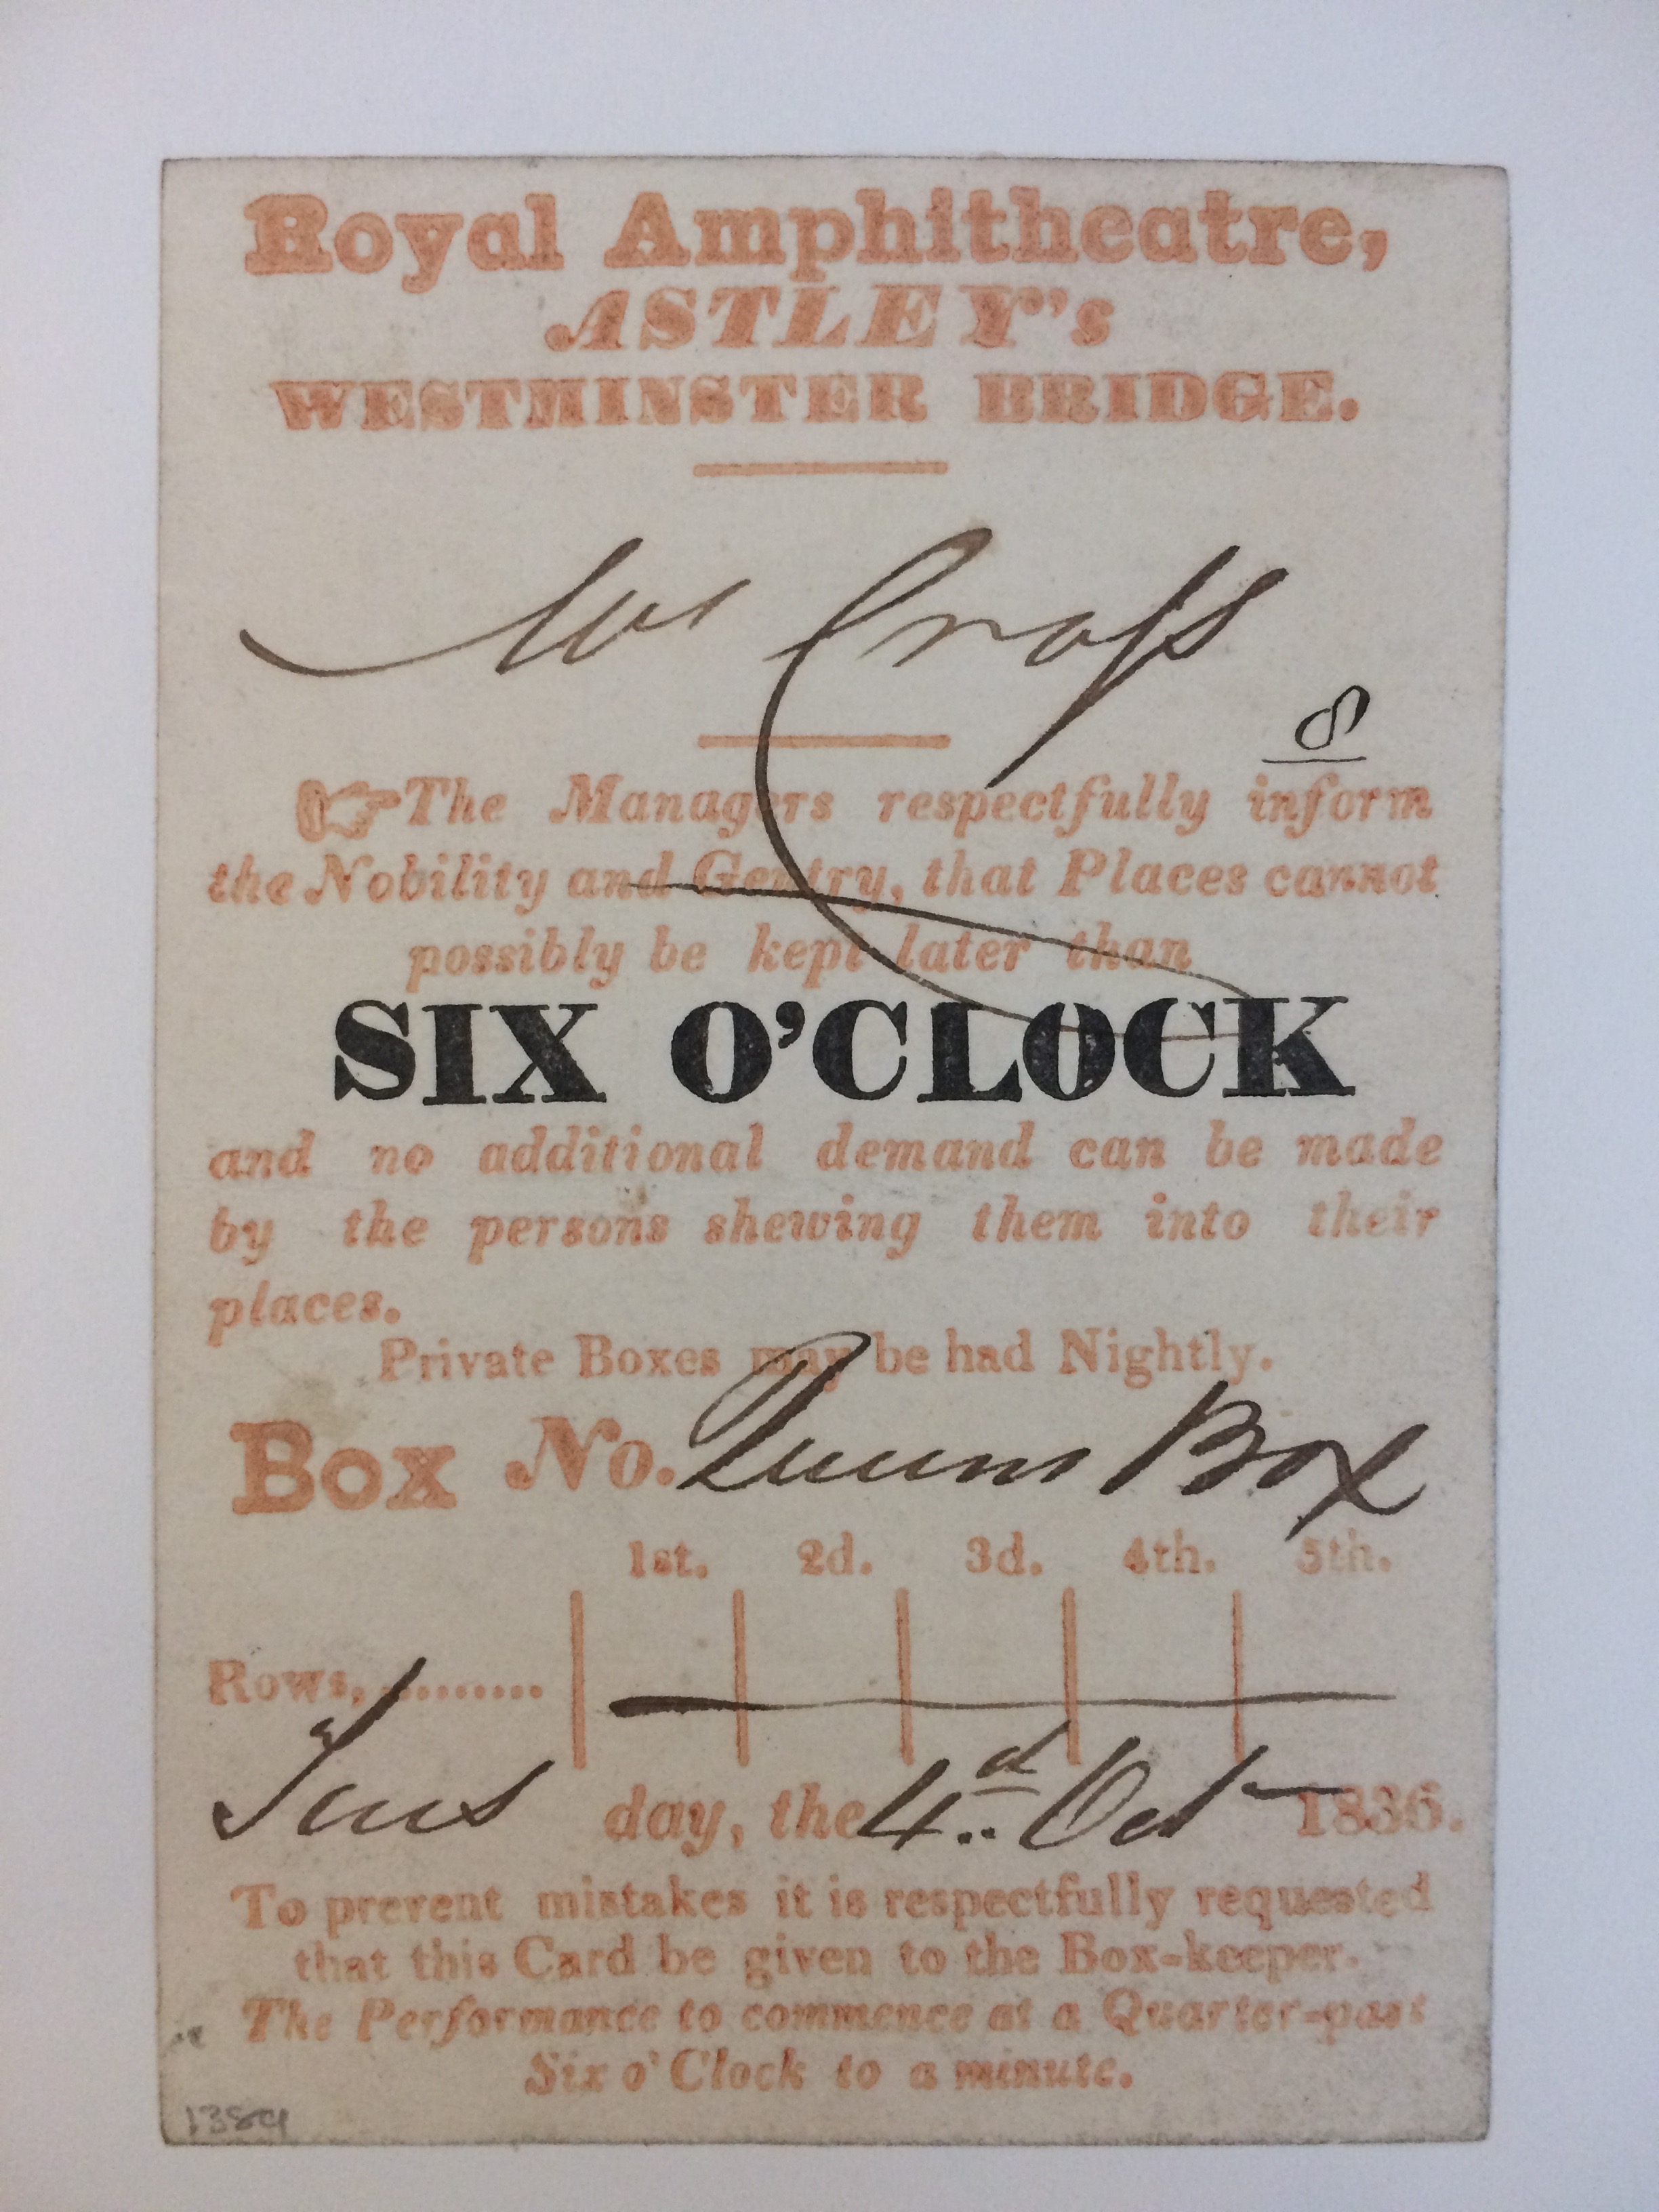 Royal Amphitheatre,
ASTLEY's
WESTMINSTER BRIDGE.
Mr Cross
8
☞The Managers respectfully inform
the Nobility and Gentry, that Places cannot
possibly be kept later than
SIX O'CLOCK
and no additional demand can be made
by the persons shewing them into their
places.
Private Boxes may be had Nightly.
Box No. Queens Box
1st. 2d. 3d. 4th. 5th.
Rows, .........
Tues day, the 4d. Oct 1836.
To prevent mistakes it is respectfully requested
that this Card be given to the Box-keeper.
The Performance to commence at a Quarter-past
Six o'Clock to a minute.